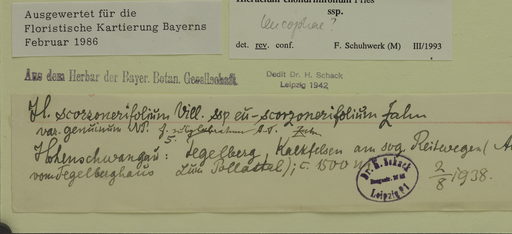 Hieracium chondrillifolium Fries
ssp.
leucophae?
det. rev. conf. F. Schuhwerk (M) III/1993
Ausgewertet für die
Floristische Kartierung Bayerns
Februar 1986
Aus dem Herbar der Bayer. Botan. Gesellschaft.
Dedit Dr. H. Schack
Leipzig 1942
H. scorzonerifolium Vill. ssp eu-scorzonerifolium Zahn
var. genuinum NP. Zahn
Hohenschwangau: Tegelberg, Kalkfelsen am sog. Reitwegen
vom Tegelberghaus zum); c. 1500 m
2/8 1938.
Dr. H. Schack
Leipzig